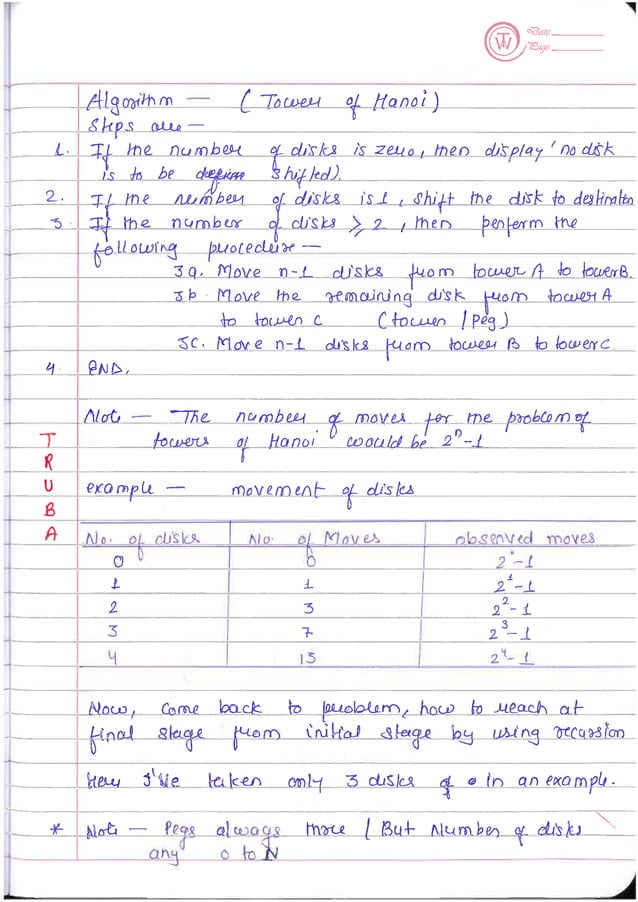 Date
Page
Algorithm — (Tower of Hanoi)
Steps are —
1. If the number of disks is zero, then display 'no disk
is to be shifted).
2. If the number of disks is 1, shift the disk to destination
3. If the number of disks ≥ 2, then perform the
following procedure —
3a. Move n-1 disks from tower A to tower B.
3b. Move the remaining disk from tower A
to tower C (tower / Peg)
3c. Move n-1 disks from tower B to tower C
4. END.
Note — The number of moves for the problem of
towers of Hanoi would be 2ⁿ-1
TRUBA
example — movement of disks
No. of disks No. of Moves observed moves
0 0 2⁰-1
1 1 2¹-1
2 3 2²-1
3 7 2³-1
4 15 2⁴-1
Now, come back to problem, how to reach at
final stage from initial stage by using recussion
Here I've taken only 3 disks in an example.
* Note — Pegs always three / But Number of disks
any 0 to N